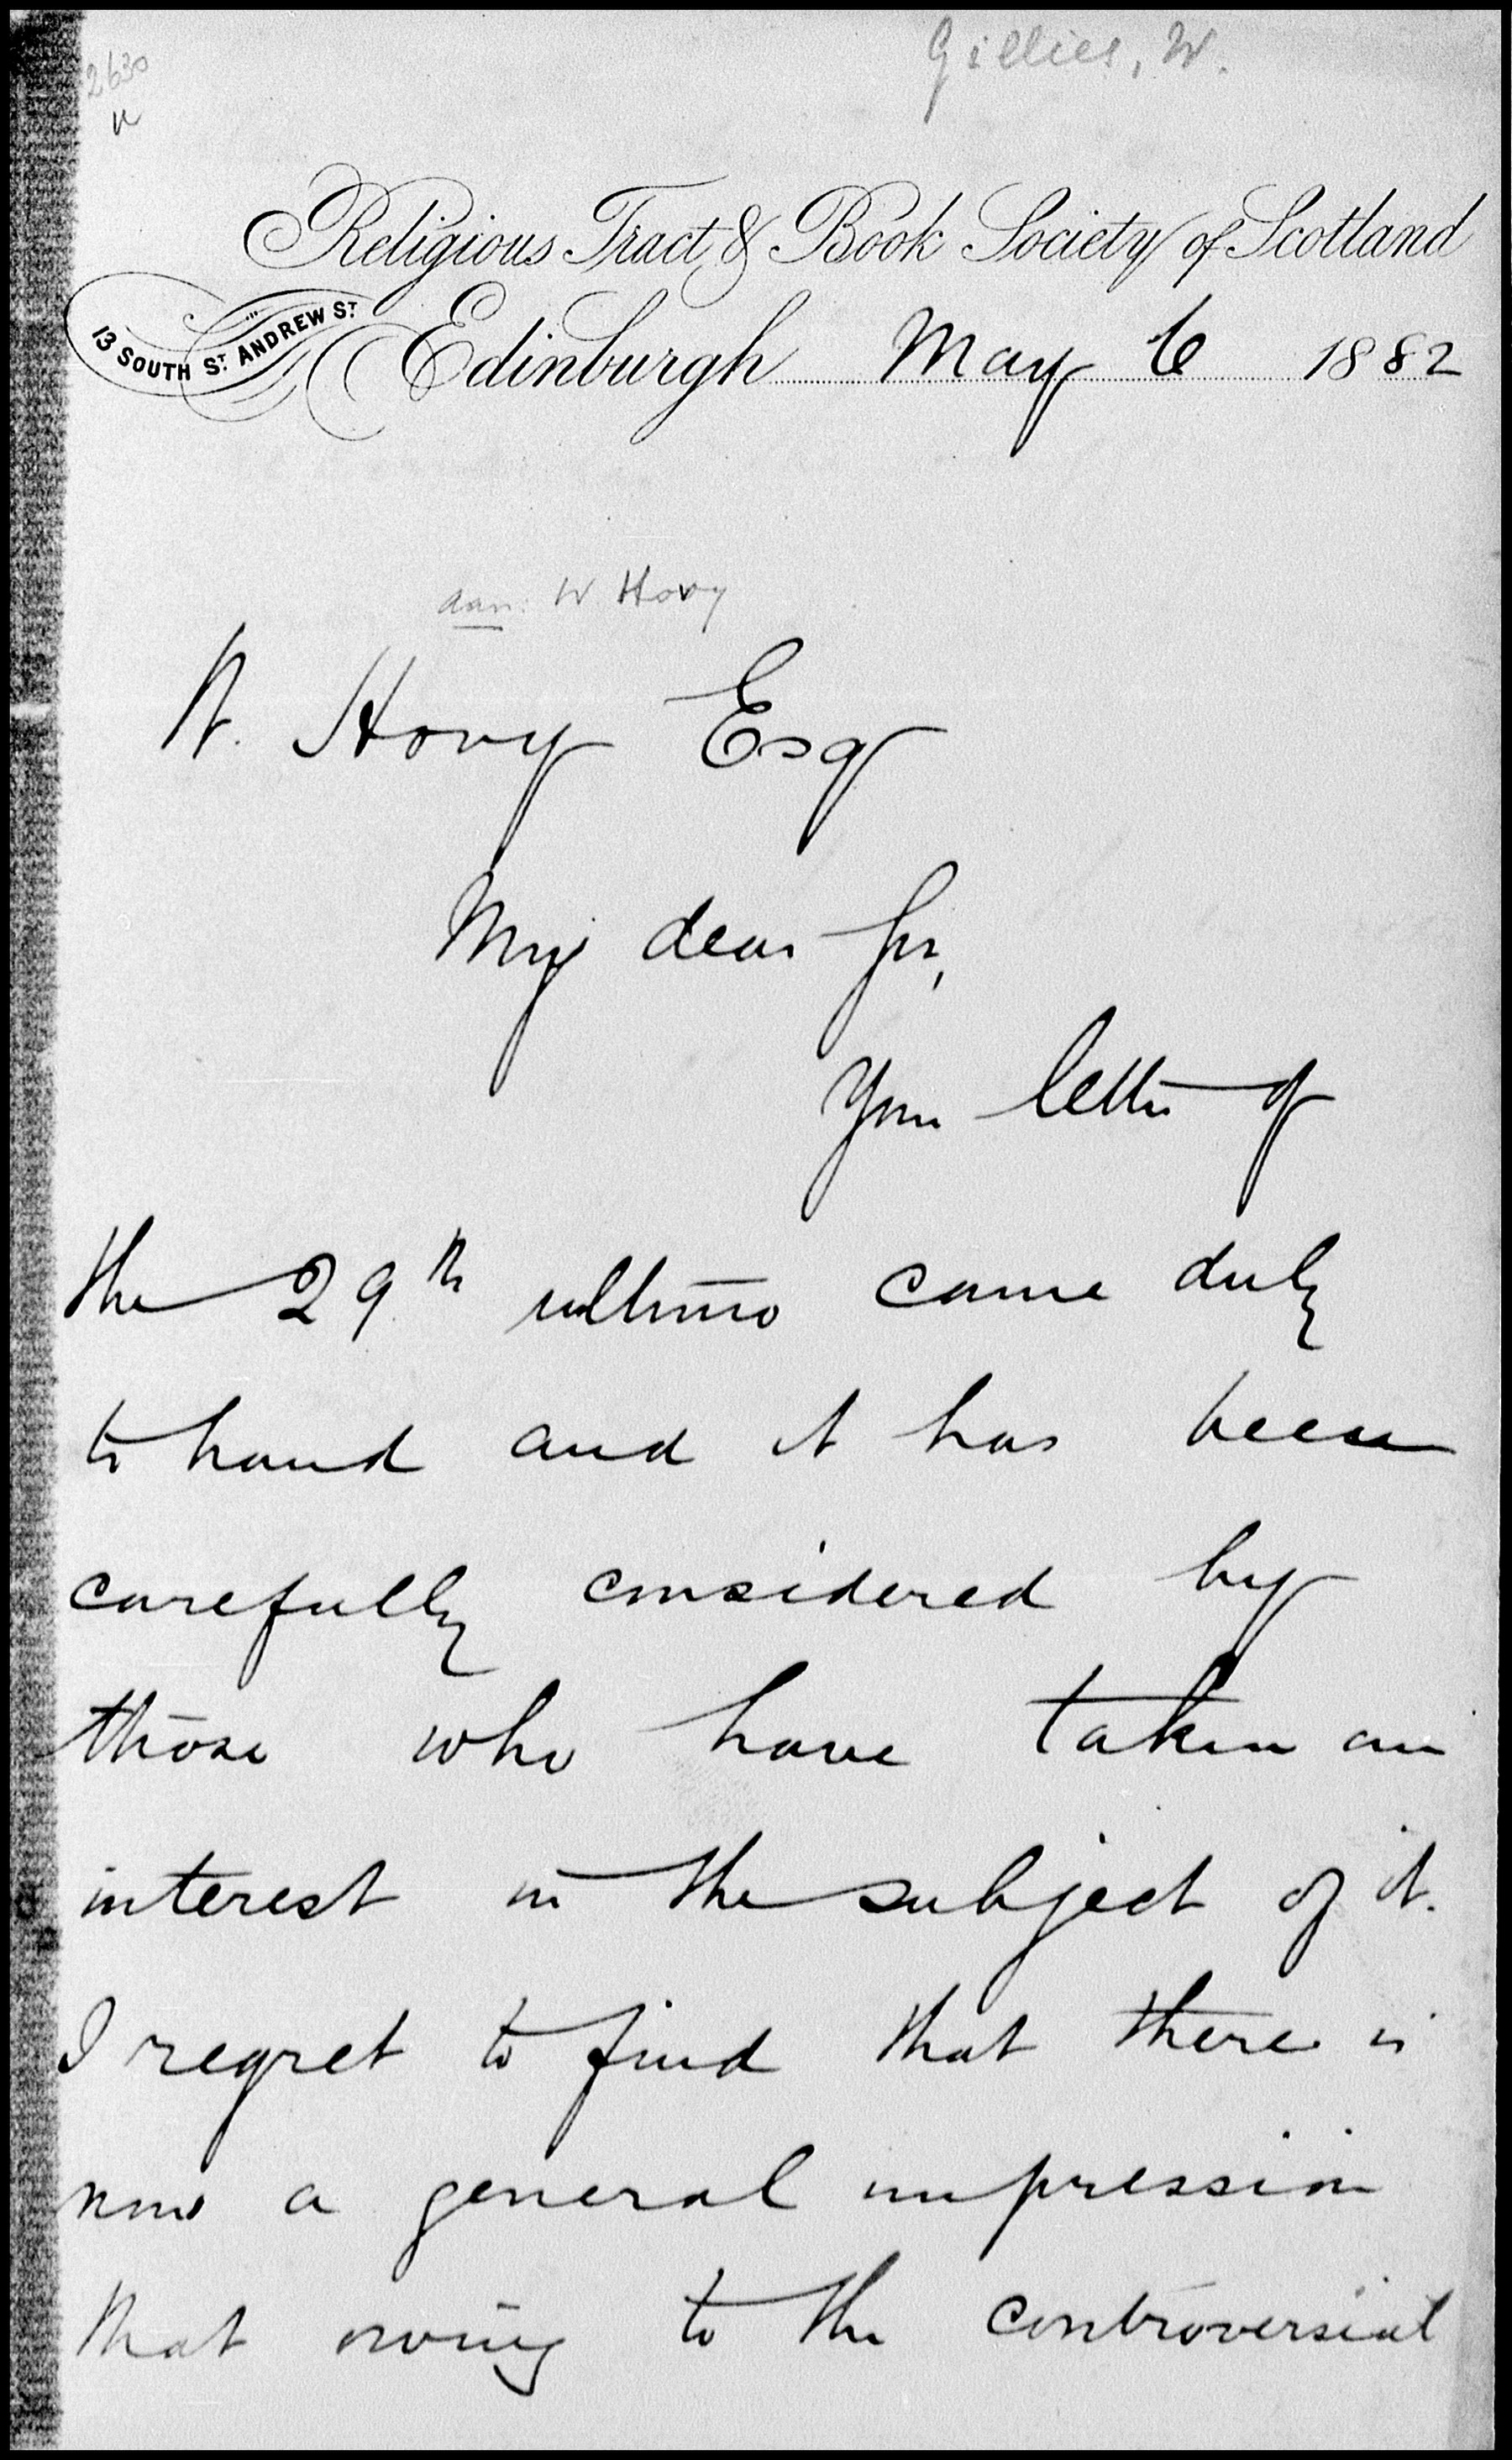 Gillies, W.
2630
Religious Tract & Book Society of Scotland
13 SOUTH ST. ANDREW ST.
Edinburgh May 6 1882
aan: W. Hovy
W. Hovy Esq
My dear Sir,
Your letter of
the 29th ultimo came duly
to hand and it has been
carefully considered by
those who have taken an
interest in the subject of it.
I regret to find that there is
now a general impression
that owing to the controversial